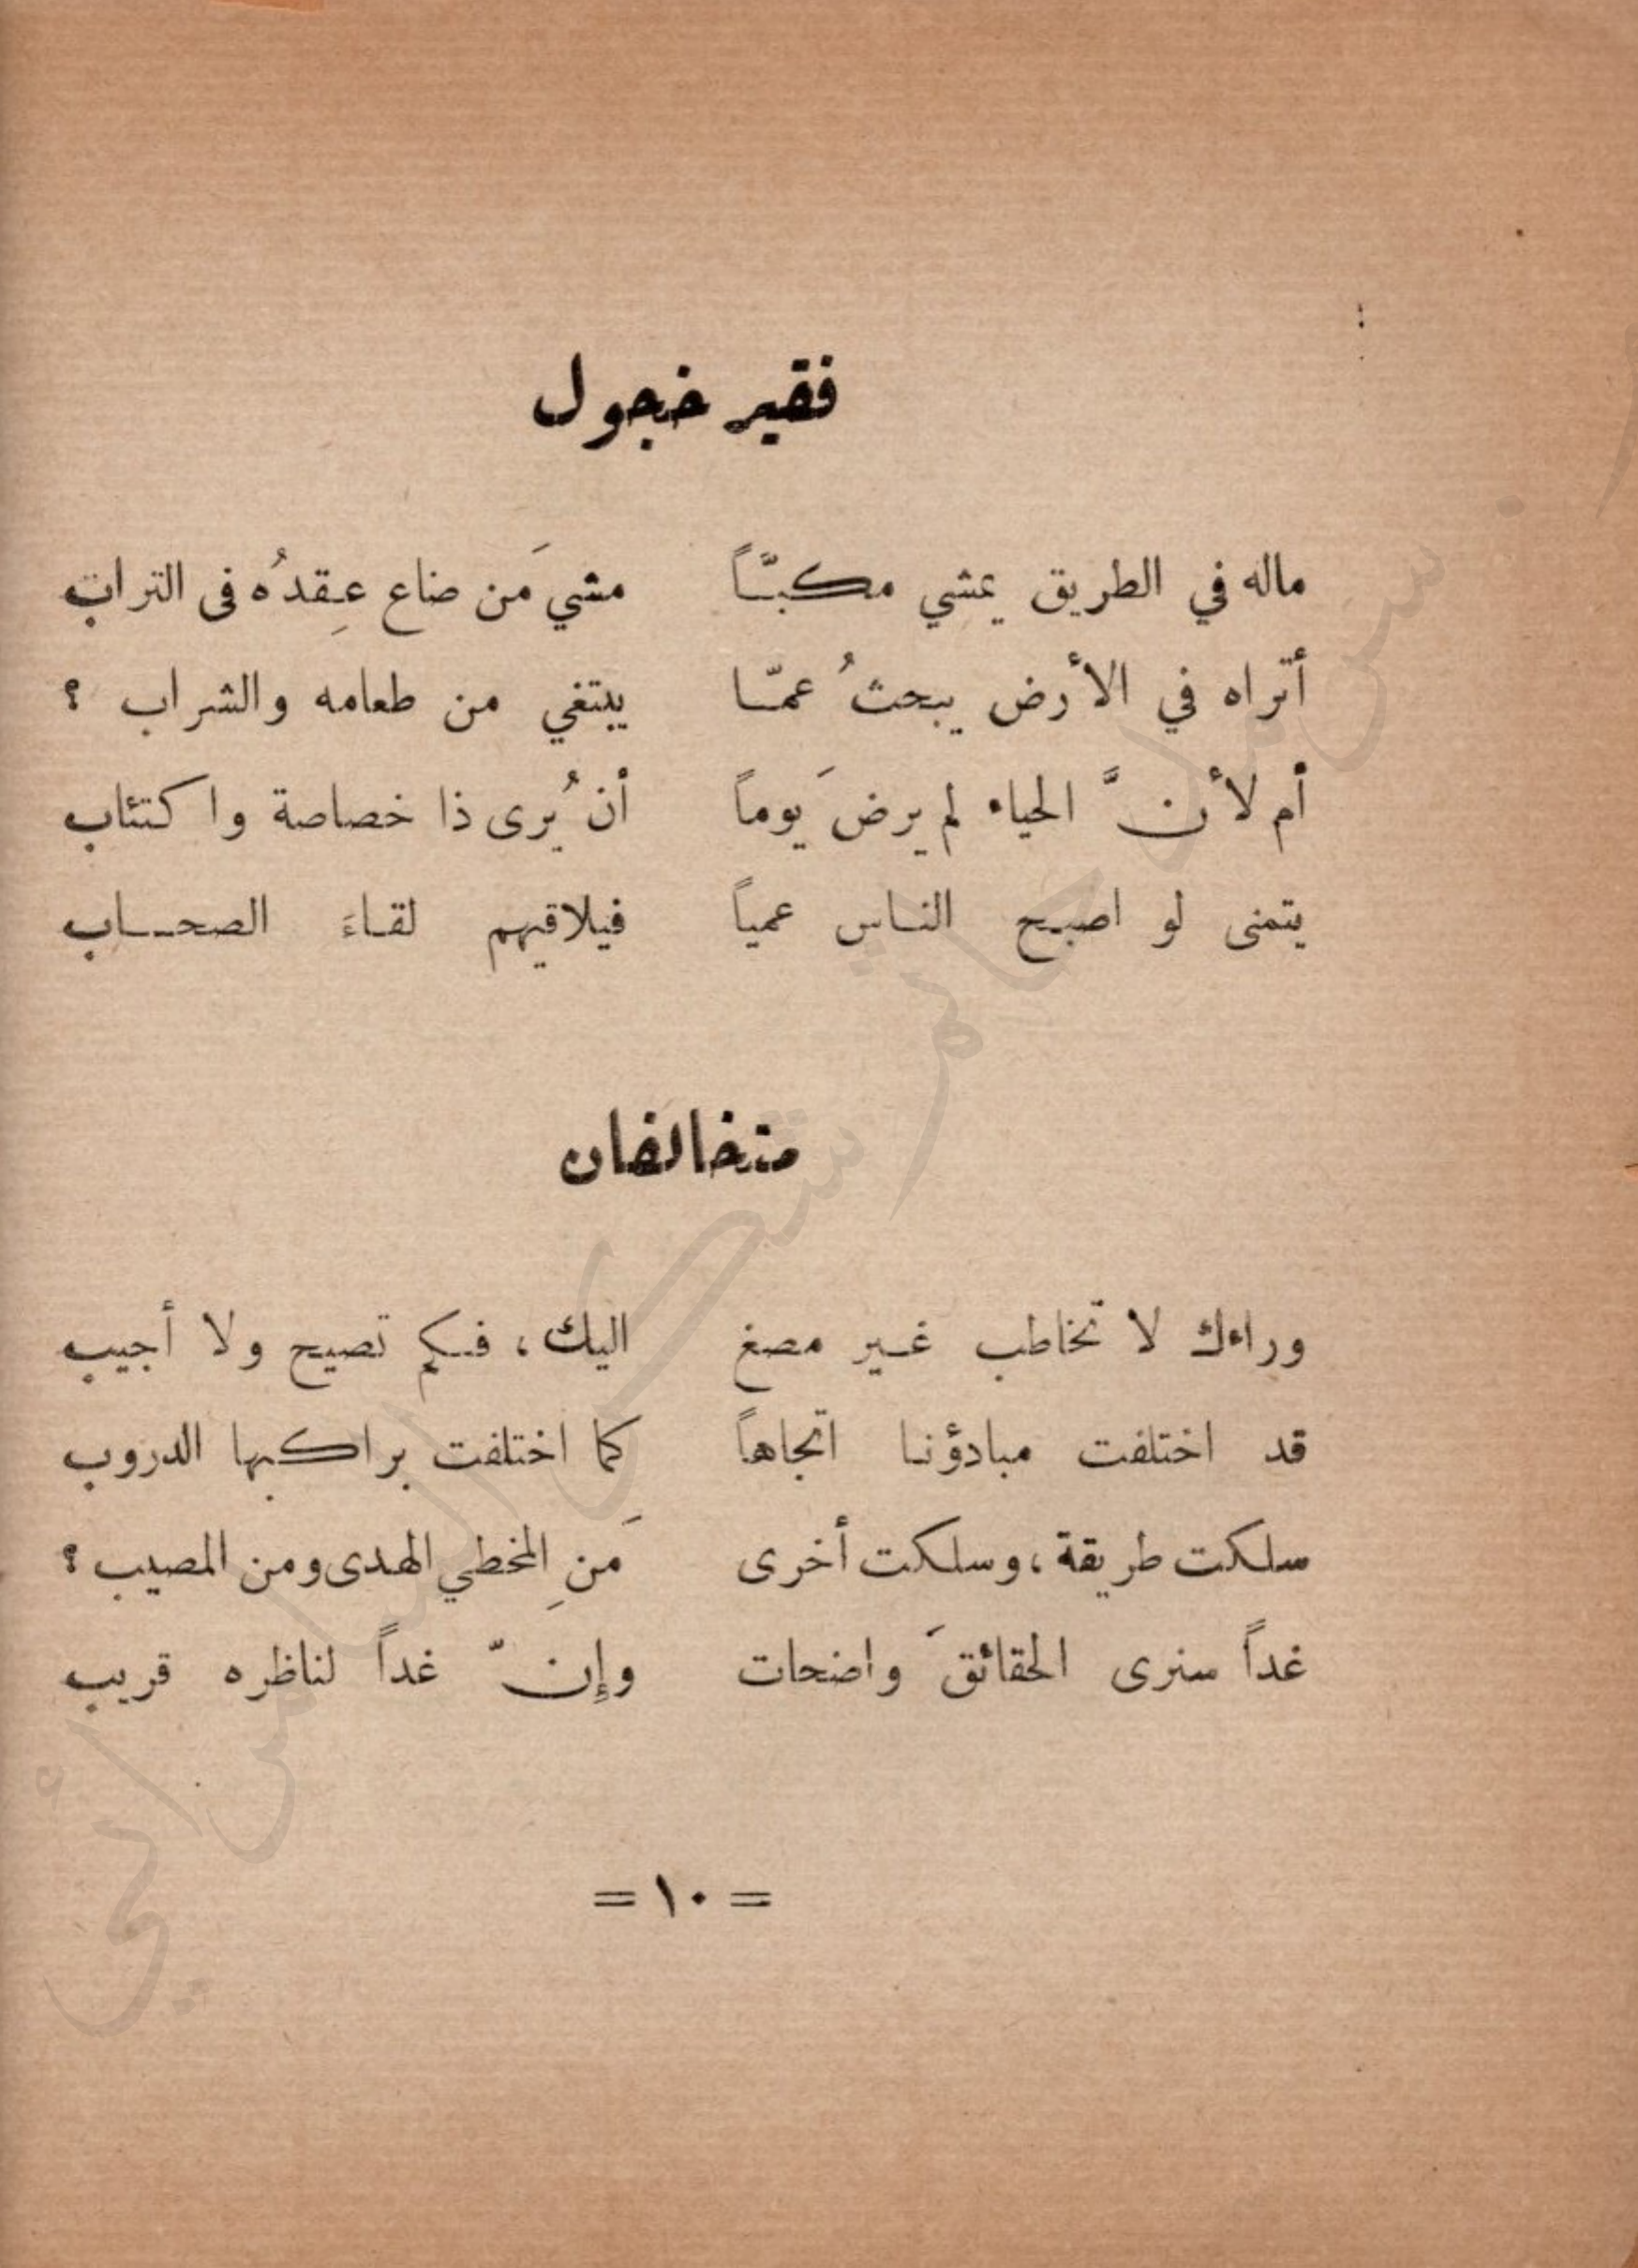 فقير خجول
ماله في الطريق يمشي مكبّاً مشيَ مَن ضاع عِقدُه فى التراب
أتراه في الأرض يبحثُ عمّا يبتغي من طعامه والشراب ؟
أم لأنَّ الحياء لم يرضَ يوماً أن يُرى ذا خصاصة واكتئاب
يتمنى لو اصبح الناس عمياً فيلاقيهم لقاءَ الصحاب
متخالفان
وراءك لا تخاطب غير مصغ اليك، فكم تصيح ولا أجيب
قد اختلفت مبادؤنا اتجاهاً كما اختلفت براكبها الدروب
سلكت طريقة، وسلكت أخرى مَنِ المخطي الهدى ومن المصيب ؟
غداً سنرى الحقائقَ واضحات وإنّ غداً لناظره قريب
= ١٠ =